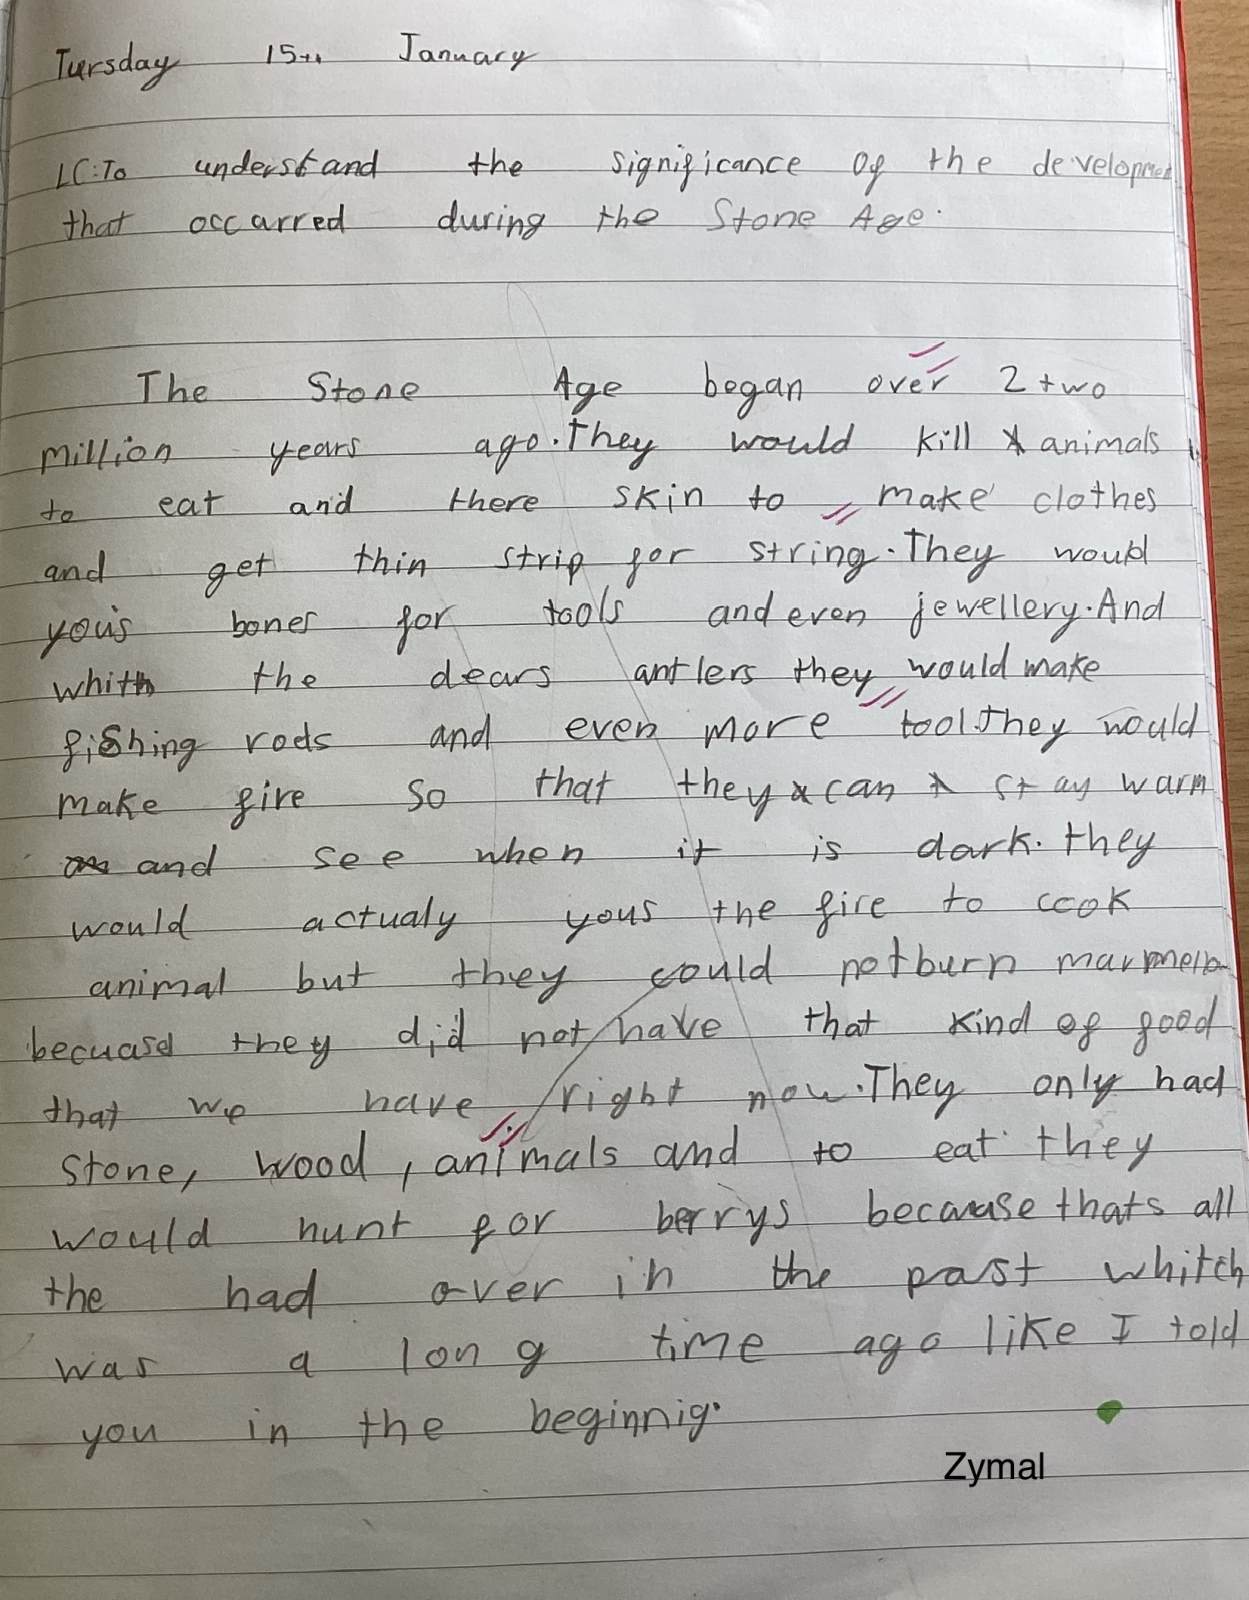 Tursday 15th January
LC: To understand the significance of the developmen
that occarred during the Stone Age.
The Stone Age began over 2 two
million years ago. They would kill animals
to eat and there skin to make clothes
and get thin strip for string. They would
yous bones for tools and even jewellery. And
whith the dears antlers they would make
fishing rods and even more tool. They would
make fire so that they can stay warm
and see when it is dark. they
would actualy yous the fire to cook
animal but they could not burn marmello
becuase they did not have that kind of good
that we have right now. They only had
stone, wood, animals and to eat they
would hunt for berrys because thats all
the had over in the past whitch
was a long time ago like I told
you in the beginnig.
Zymal